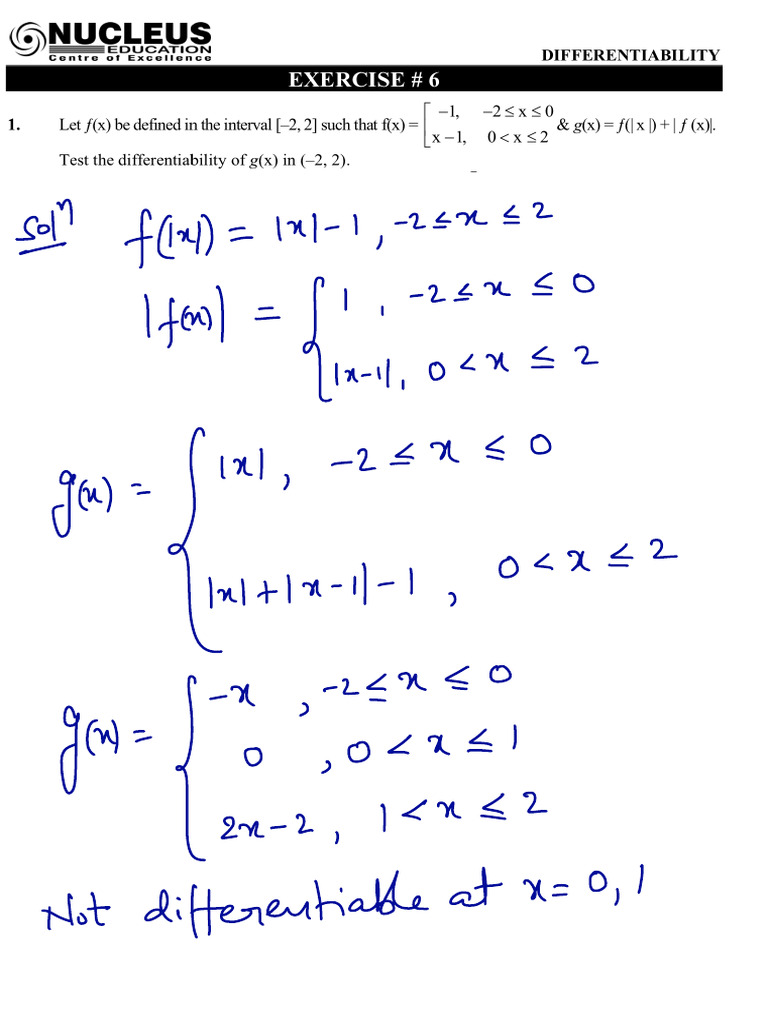 NUCLEUS
EDUCATION
Centre of Excellence
DIFFERENTIABILITY
EXERCISE # 6
1. Let f(x) be defined in the interval [–2, 2] such that f(x) = [ −1, −2 ≤ x ≤ 0
x − 1, 0 < x ≤ 2 & g(x) = f(| x |) + | f (x)|.
Test the differentiability of g(x) in (–2, 2).
Solⁿ f(|x|) = |x| - 1 , -2 ≤ x ≤ 2
|f(x)| = { 1 , -2 ≤ x ≤ 0
|x-1|, 0 < x ≤ 2
g(x) = { |x| , -2 ≤ x ≤ 0
|x| + |x-1| - 1 , 0 < x ≤ 2
g(x) = { -x , -2 ≤ x ≤ 0
0 , 0 < x ≤ 1
2x-2 , 1 < x ≤ 2
Not differentiable at x = 0, 1